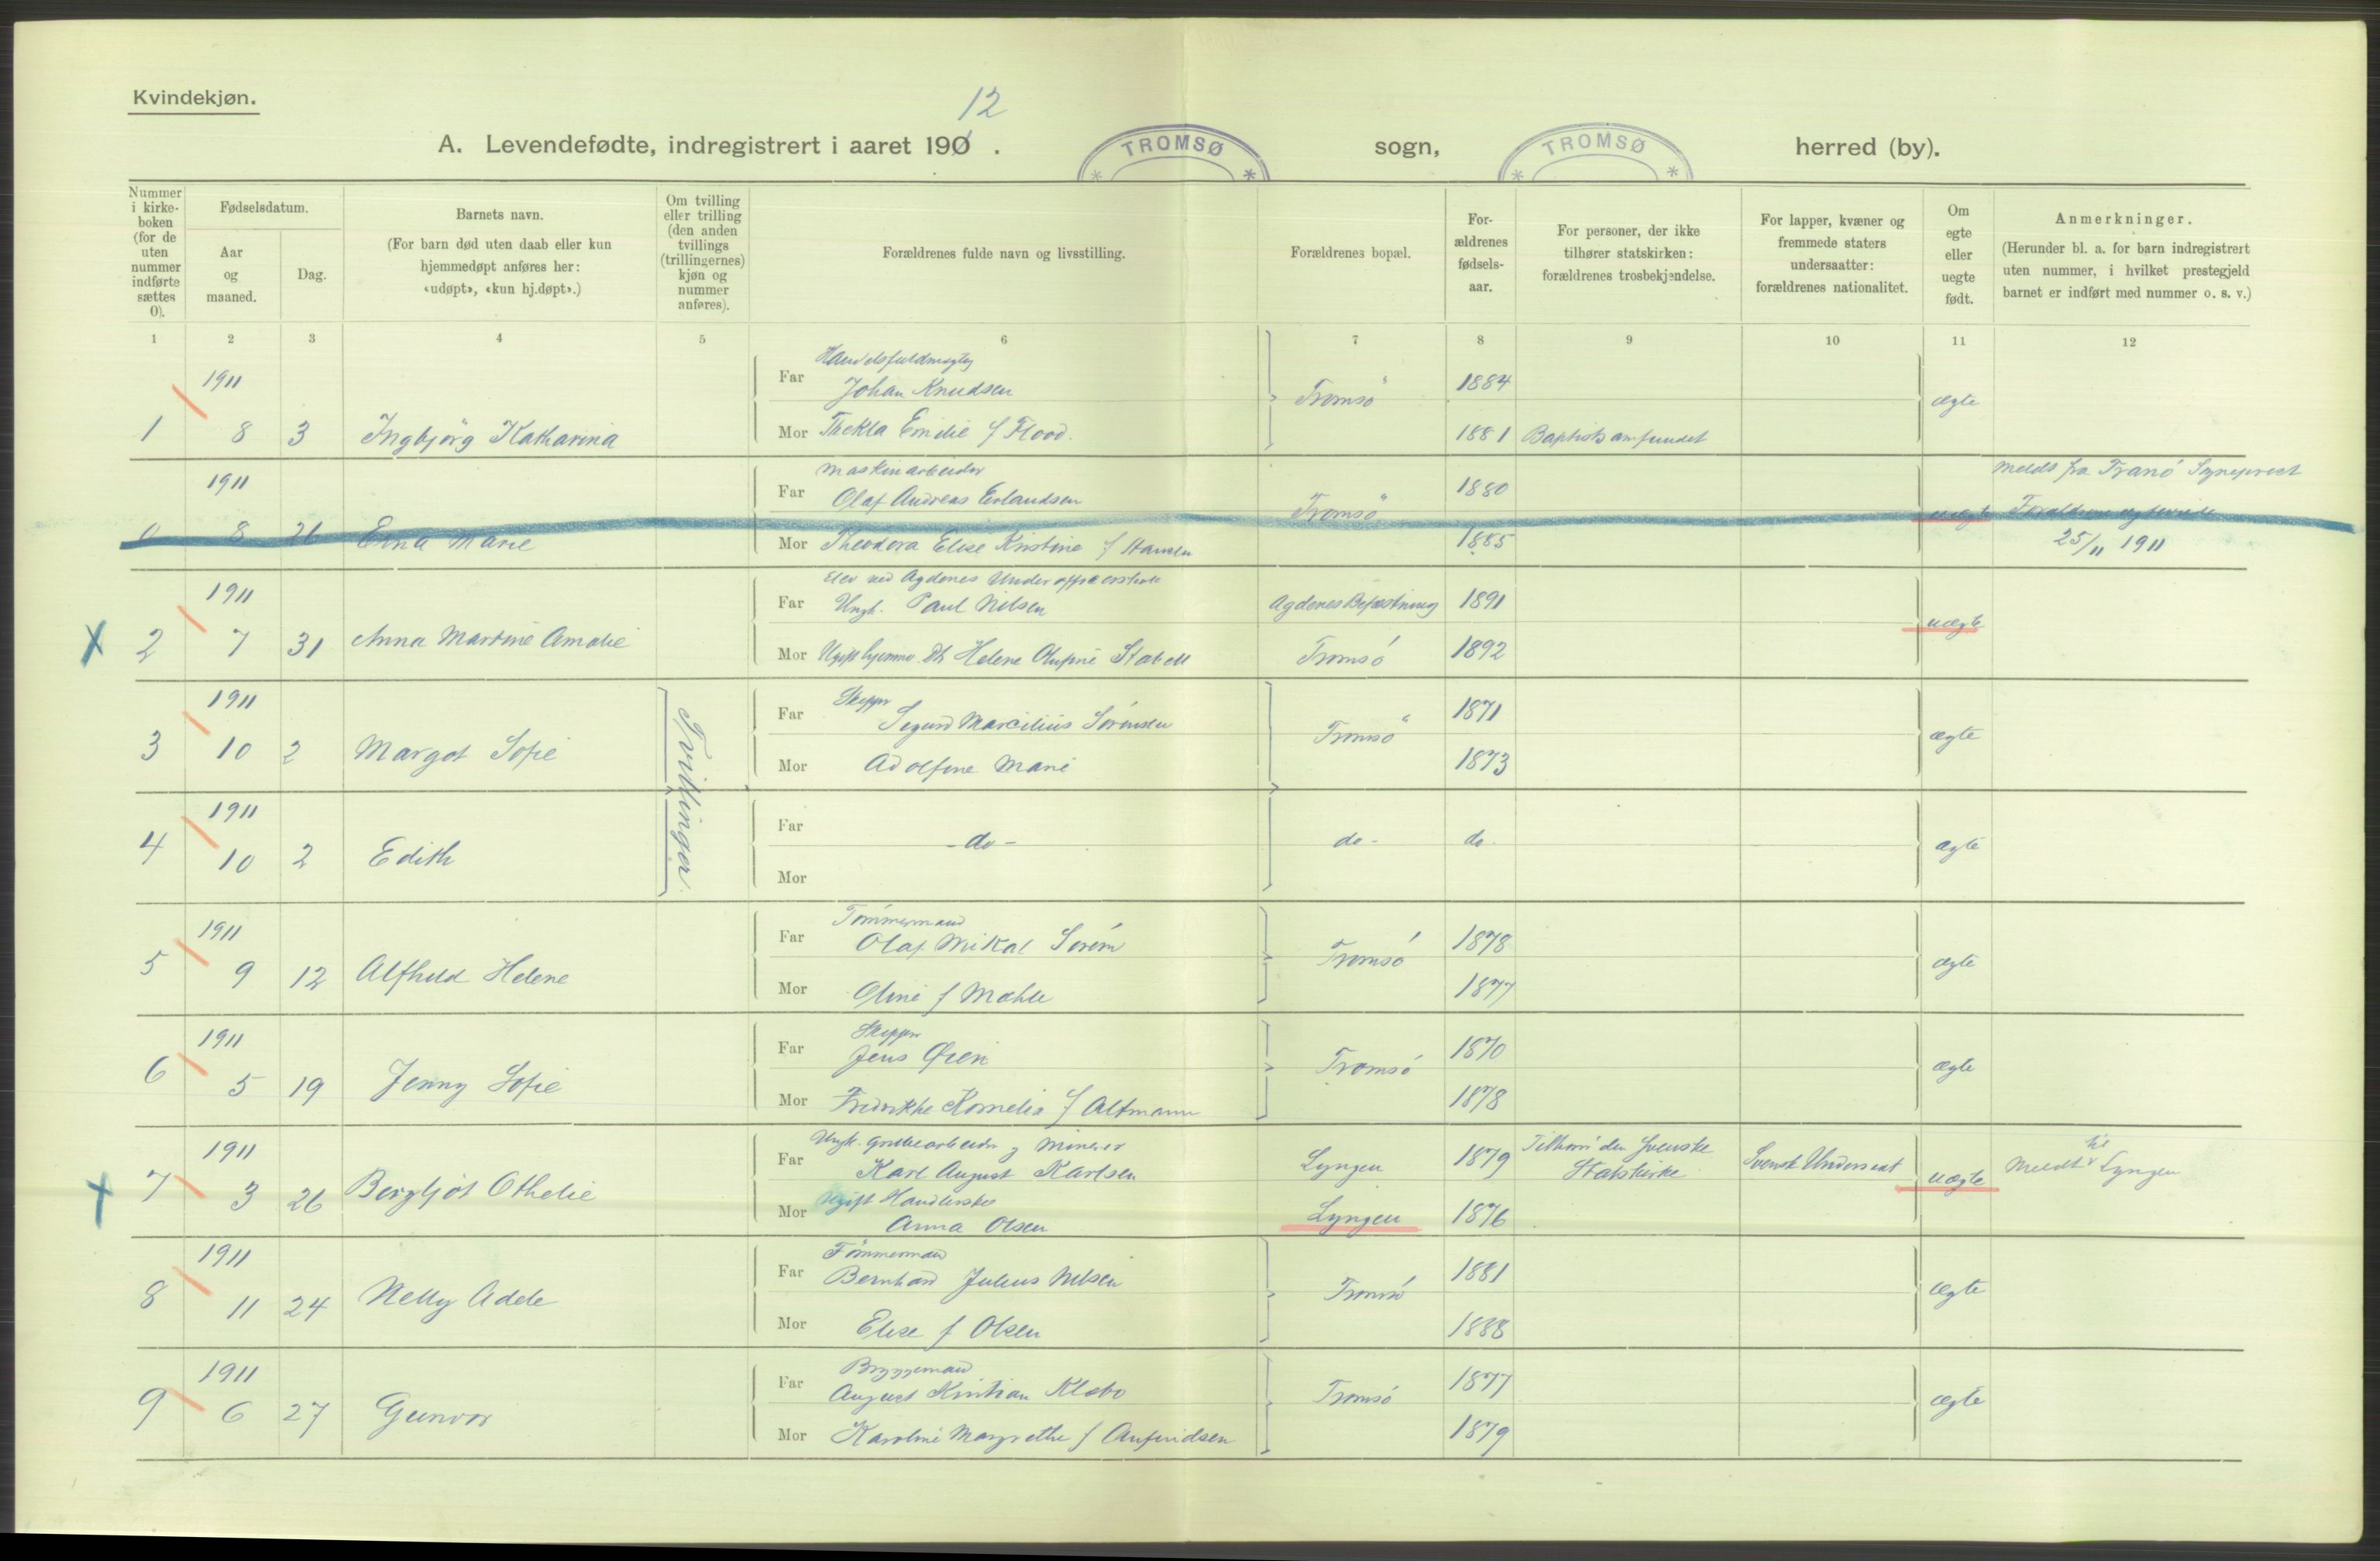 Kvindekjøn.
12
A. Levendefødte, indregistrert i aaret 190 .
TROMSØ
sogn,
TROMSØ
herred (by).
Nummer i kirke-boken (for de uten nummer indførte sættes 0).
Fødselsdatum.
Aar og maaned.
Dag.
Barnets navn.
(For barn død uten daab eller kun hjemmedøpt anføres her: «udøpt», «kun hj.døpt».)
Om tvilling eller trilling (den anden tvillings (trillingernes) kjøn og nummer anføres).
Forældrenes fulde navn og livsstilling.
Forældrenes bopæl.
For-ældrenes fødsels-aar.
For personer, der ikke tilhører statskirken: forældrenes trosbekjendelse.
For lapper, kvæner og fremmede staters undersaatter: forældrenes nationalitet.
Om egte eller uegte født.
Anmerkninger.
(Herunder bl. a. for barn indregistrert uten nummer, i hvilket prestegjeld barnet er indført med nummer o. s. v.)
1 2 3 4 5 6 7 8 9 10 11 12
Handelsfuldmægtig
1911 Far Johan Knudsen Tromsö 1884 ægte
1 8 3 Ingbjörg Katharina Mor Thekla Emilie f Flood. 1881 Baptistsamfundet
Maskinarbeider
1911 Far Olaf Andreas Erlandsen Tromsö 1880 uægte
0 8 26 Erna Marie Mor Theodora Elise Kristine f Hansen 1885
Meldt fra Tranö
25/11 1911
Elev ved Agdenes
1911 Far Ungk. Paul Nilsen Agdenes Befæstning 1891 uægte
2 7 31 Anna Martine Amalie Mor Ugift hjemmev. Dtr Helene Olufine Stabell Tromsö 1892
Tvillinger
Skipper
1911 Far Sigurd Marcilius Sörensen Tromsö 1871 ægte
3 10 2 Margot Sofie Mor Adolfine Marie 1873
1911 Far - do - do - do - ægte
4 10 2 Edith Mor
Tömmermand
1911 Far Olaf Mikal Tromsö 1878 ægte
5 9 12 Alfhild Helene Mor Oline f Mæhle 1877
Skipper
1911 Far Jens Øien Tromsö 1870 ægte
6 5 19 Jenny Sofie Mor Fredrikke Kornelia f Altmann 1878
Ungk. Grubearbeider og Minerer
1911 Far Karl August Karlsen Lyngen 1879 Tilhører den Svenske Statskirke Svensk Undersaat uægte Meldt til Lyngen
7 3 26 Bergljot Othelie Mor Ugift Handlerske Anna Olsen Lyngen 1876
Tömmermand
1911 Far Bernhard Julius Nilsen Tromsö 1881 ægte
8 11 24 Nelly Adele Mor Elise f Olsen 1888
Bryggemand
1911 Far August Kristian Klæbo Tromsö 1877 ægte
9 6 27 Gunvor Mor Karoline Margrethe f Anfindsen 1879